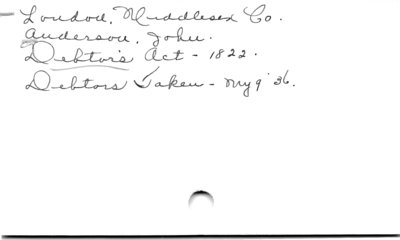 London, Middlesex Co.
Anderson, John.
Debtor's Act - 1822.
Debtors Taken - My 9 '36.